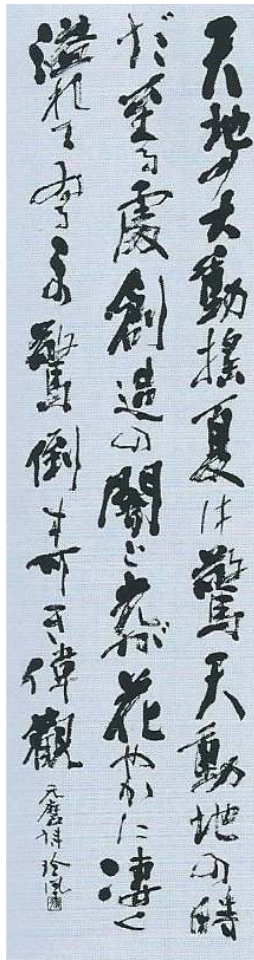 天地の大動揺夏は驚天動地の時
だ至る處創造の闘が花やかに凄く
溢れてゐる驚倒す可き偉觀
元麿詩